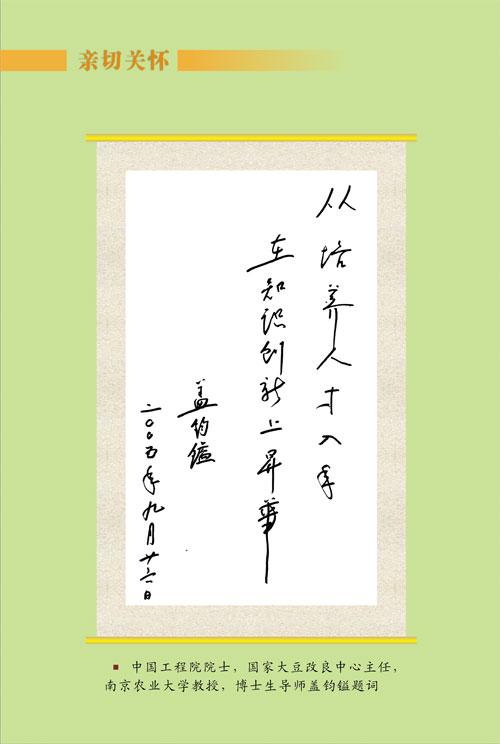 亲切关怀
从培养人才入手
在知识创新上昇华
盖钧镒
二〇〇五年九月廿六日
中国工程院院士，国家大豆改良中心主任，
南京农业大学教授，博士生导师盖钧镒题词